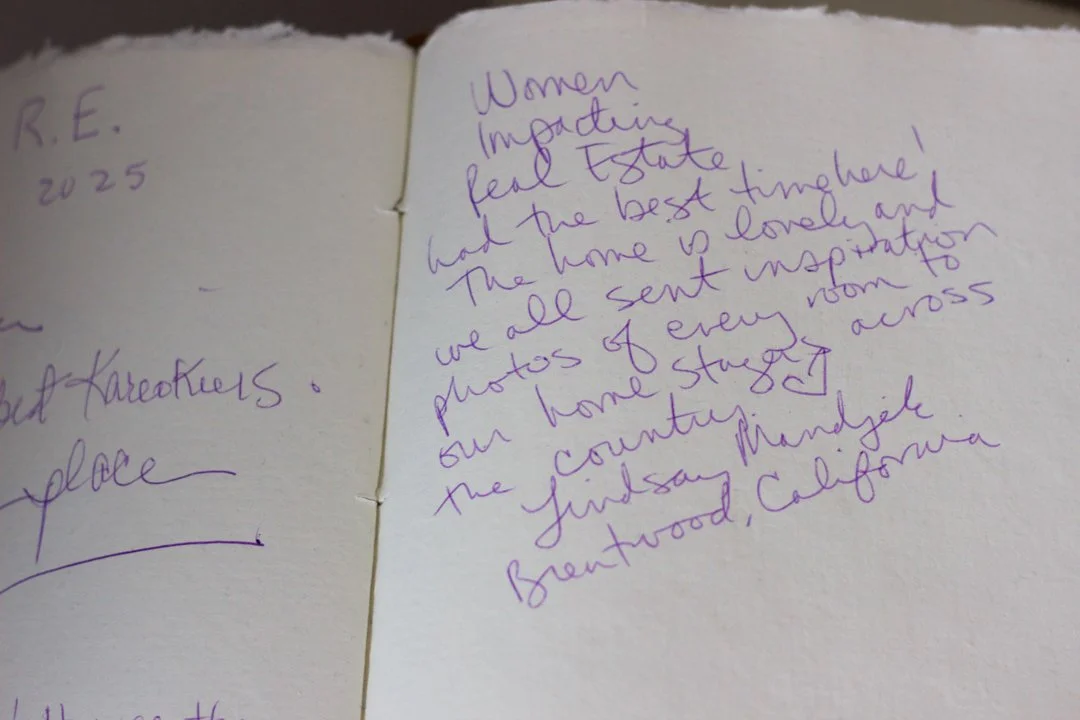 R.E.
2025
best Kareokeers.
place
Women
Impacting
Real Estate
had the best time here!
The home is lovely and
we all sent inspiration
photos of every room to
our home stagers across
the country.
Lindsay Mandjek
Brentwood, California